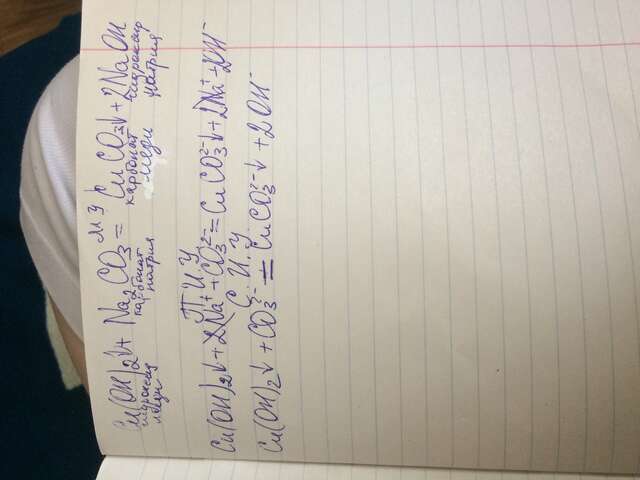 М У
Cu(OH)₂↓ + Na₂CO₃ = CuCO₃↓ + 2NaOH
гидроксид меди карбонат натрия карбонат меди гидроксид натрия
П. И. У
Cu(OH)₂↓ + 2Na⁺ + CO₃²⁻ = CuCO₃²⁻↓ + 2Na⁺ + 2OH⁻
С. И. У.
Cu(OH)₂↓ + CO₃²⁻ = CuCO₃²⁻↓ + 2OH⁻